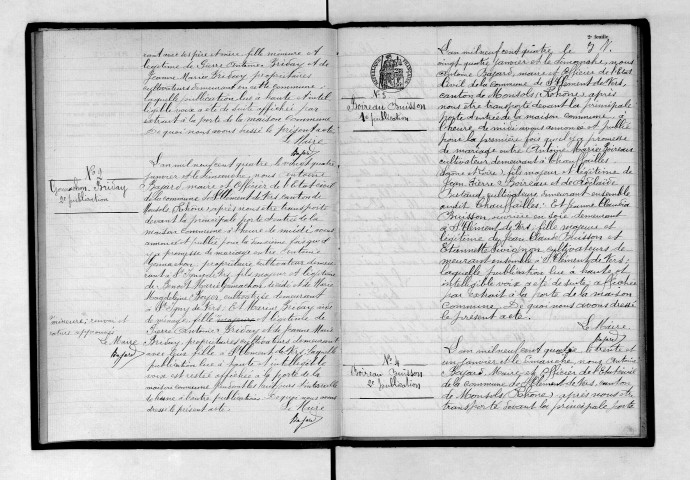 cant avec ses père et mère, fille mineure et
légitime de Pierre Antoine Brébay et de
Jeanne Marie Brebay propriétaires
cultivateurs demeurant en cette commune
laquelle publication lue à haute et intel
ligible voix a été de suite affichée par
extrait à la porte de la maison commune
De quoi nous avons dressé le présent acte.
Le Maire
Bajard
N° 4
2e publication
L'an mil neuf cent quatre le vingt quatre
janvier et le dimanche, nous Antoine
Bajard, maire et officier de l'état civil
de la commune de St Clément de Vers canton de
Monsols (Rhône) après nous être transporté
devant la principale porte d'entrée de la
maison commune à l'heure de midi avons
annoncé et publié pour la seconde fois qu'il
y a promesse de mariage entre
propriétaire cultivateur demeu
rant à St Igny de Vers, fils majeur et légitime
de Benoît
cultivatrice demeurant
à St Igny de Vers. Et
légitime de
Pierre Antoine Brébay et de Jeanne Marie
Brebay, propriétaires cultivateurs demeurant
avec leur fille à St Clément de Vers, laquelle
publication lue à haute et intelligible
voix est restée affichée à la porte de
la maison commune pendant les huit jours d'intervalle
de l'une à l'autre publication. De quoi nous avons
dressé le présent acte.
Le Maire
Bajard
Le Maire
Bajard
2e feuille
N° 3
Boireau Buisson
1e publication
L'an mil neuf cent quatre le
vingt quatre janvier et le dimanche, nous
Antoine Bajard, maire et officier de l'état
civil de la commune de St Clément de Vers,
canton de Monsols, Rhône, après
nous être transporté devant la principale
porte d'entrée de la maison commune à
l'heure de midi avons annoncé et publié
pour la première fois qu'il y a promesse
de mariage entre Antoine Marie Boireau
cultivateur demeurant à Chauffailles
Saône et Loire, fils majeur et légitime de
Jean Pierre Boireau et de
demeurant ensemble
audit Chauffailles. Et Jeanne Claudine
Buisson ouvrière en soie demeurant
à St Clément de Vers, fille majeure et
légitime de Jean Claude Buisson et
cultivateurs de
meurant ensemble à St Clément de Vers;
laquelle publication lue à haute et
intelligible voix a été de suite affichée
par extrait à la porte de la maison
commune. De quoi nous avons dressé
le présent acte.
Le Maire
Bajard
N° 4
Boireau Buisson
2e publication
L'an mil neuf cent quatre le trente et
un janvier et le dimanche, nous Antoine
Bajard, Maire et officier de l'état civil
de la commune de St Clément de Vers, canton
de Monsols, (Rhône) après nous être
transporté devant la principale porte